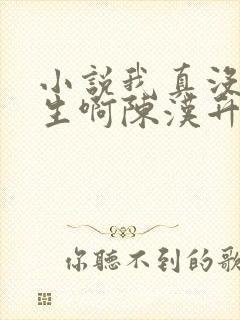 小說我真沒
生啊陳漢升
你聽不到的歌